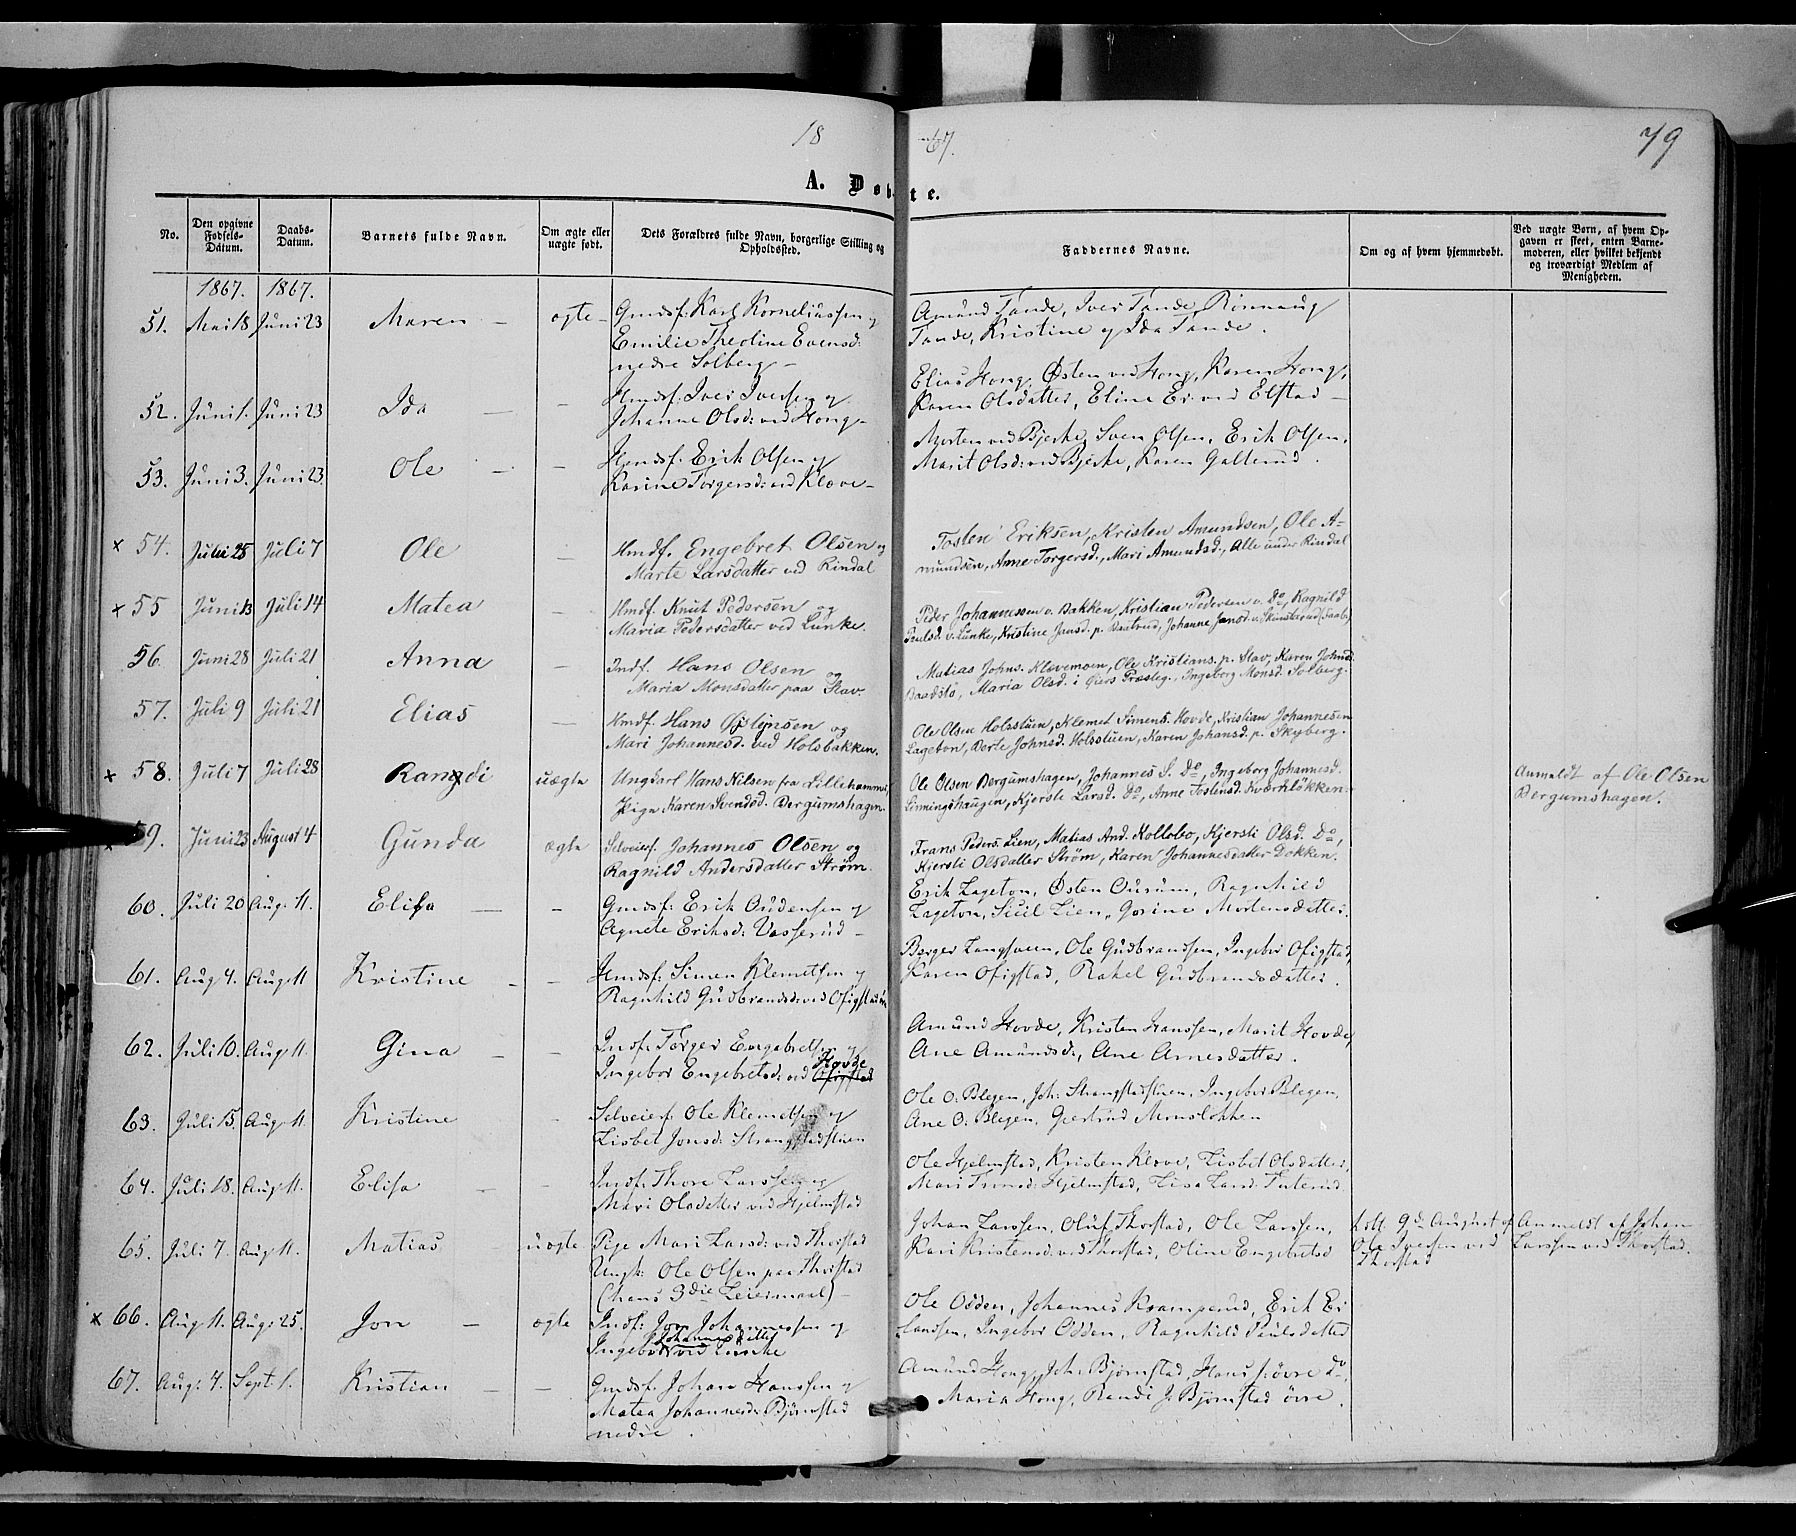 18 67. 79
A. Døbte.
No. Den opgivne Fødsels-Datum. Daabs-Datum. Barnets fulde Navn. Om ægte eller uægte født. Dets Forældres fulde Navn, borgerlige Stilling og Opholdssted. Faddernes Navne. Om og af hvem hjemmedøbt. Ved uægte Børn, af hvem Opgaven er skeet, enten Barnemoderen, eller hvilket bekjendt og troværdigt Medlem af Menigheden.
1867. 1867.
51. Mai 18 Juni 23 Maren – ægte – Gmdsf: Karl Korneliussen og Amund Tande, Iver Tande, Rønnaug
Emilie Theoline Evensd: Tande, Kristine og Ida Tande.
nedre Solberg –
52. Juni 1. Juni 23 Ida – – Hmdsf: Iver Iversen og Elias Hong, Østen ved Hong, Karen Hong,
Johanne Olsd: ved Hong – Karen Olsdatter, Eline Er: ved Elstad –
53. Juni 3. Juni 23 Ole – – Hmdsf: Erik Olsen og Morten ved Bjerke, Sven Olsen, Erik Olsen,
Karine Torgersd: ved Kløve – Marit Olsd: ved Bjerke, Karen Galterud.
x 54. Juni 25 Juli 7 Ole – Hmdf. Engebret Olsen og Tosten Eriksen, Kristen Amundsen, Ole A=
Marte Larsdatter ved Rindal mundsen, Anne Torgersd., Mari Amundsd., Alle under Rindal
x 55 Juni 13 Juli 14 Matea – Hmdf. Knut Pedersen og Peder Johannessen v. Bakken, Kristian Pedersen v. Do, Ragnild
Maria Pedersdatter ved Lunke. Paulsd. v. Lunke, Kristine Jansd. p. Baatrud, Johanne Jansd. v. Skinsterud (Faab.)
56. Juni 28 Juli 21 Anna – Indf. Hans Olsen og Matias Johns. Kløvemoen, Ole Kristians. p. Slav, Karen Johnsd.
Maria Monsdatter paa Slav. Baadstø, Maria Olsd. i Øiers Præsteg., Ingeborg Monsd. Solberg.
57. Juli 9 Juli 21 Elias – Hmdf. Hans Østensen og Ole Olsen Holsstuen, Klemet Simens. Hovde, Kristian Johannesen
Mari Johannesd. ved Holsbakken. Lageton, Berte Johnsd. Holsstuen, Karen Johansd. p. Skyberg.
x 58. Juli 7 Juli 28 Rangdi uægte Ungkarl Hans Nilsen fra Lillehammer, Ole Olsen Bergumshagen, Johannes S. Do, Ingeborg Johannesd. Anmeldt af Ole Olsen
Pige Karen Svendsd. Bergumshagen. Simingshaugen, Kjersti Larsd. Do, Anne Tostensd. Kværkløkken. Bergumshagen.
x 59. Juni 23 August 4 Gunda ægte Selveierf. Johannes Olsen og Frans Peders. Lien, Matias And. Kollobo, Kjersti Olsd. Do,
Ragnild Andersdatter Strøm. Kjersti Olsdatter Strøm, Karen Johannesdatter Dokken.
60. Juli 20 Aug: 11. Elisa – – Gmdsf: Erik Audensen og Erik Lageton, Østen Aurum, Ragnhild
Agnete Eriksd: Vasserud – Lageton, Sicil Lien, Gorine Mortensdatter.
61. Aug 4. Aug 11 Kristine – – Hmdsf: Simen Klemetsen og Berger Langsveen, Ole Gudbrandsen, Ingebor Ofigstad,
Ragnhild Gudbrandsd: ved Ofigstad Karen Ofigstad, Rakel Gudbrandsdatter.
62. Juli 10. Aug: 11. Gina – – Indf: Torger Engebretsen og Amund Hovde, Kristen Hanssen, Marit Hovde,
Ingebor Engebretsd: ved Ofigstad Hovde Ane Amundsd:, Ane Arnesdatter.
63. Juli 15. Aug. 11. Kristine – Selveierf: Ole Klemetsen og Ole O: Blegen, Joh: Strangstadstuen, Ingebor Blegen,
Lisbet Jonsd: Strangstadstuen Ane O: Blegen, Gjertrud Monsløkken
64. Juli 18. Aug 11. Elisa – – Indsf: Thore Larssen og Ole Hjelmstad, Kristen Kløve, Lisbet Olsdatter,
Mari Olsdatter ved Hjelmstad Mari Hjelmstad, Lisa Larsd:
65. Juli 7. Aug: 11. Matias – uægte Pige Mari Larsd: ved Thorstad Johan Larssen, Oluf Thorstad, Ole Larssen, 9de August af Anmeldt af Johan
Ungk: Ole Olsen paa Thorstad Kari Kristensd: ved Thorstad, Oline Engebretsd Ole Iversen ved Thorstad Larssen ved Thorstad.
(hans 3die Leiermaal) –
x 66. Aug 11. Aug: 25. Jon – ægte Indsf: Jon Johannessen og Ole Odden, Johannes Kramperud, Erik Er=
Ingebor Johannesdatter ved Lunke landsen, Ingebor Odden, Ragnhild Paulsdatter
67. Aug: 4. Sept: 1. Kristian – – Gmdsf: Johan Hanssen og Amund Hong, Joh: Bjørnstad, Hans J: øvre do,
Matea Johannesd: Bjørnstad Maria Hong, Randi J: Bjørnstad øvre.
nedre.